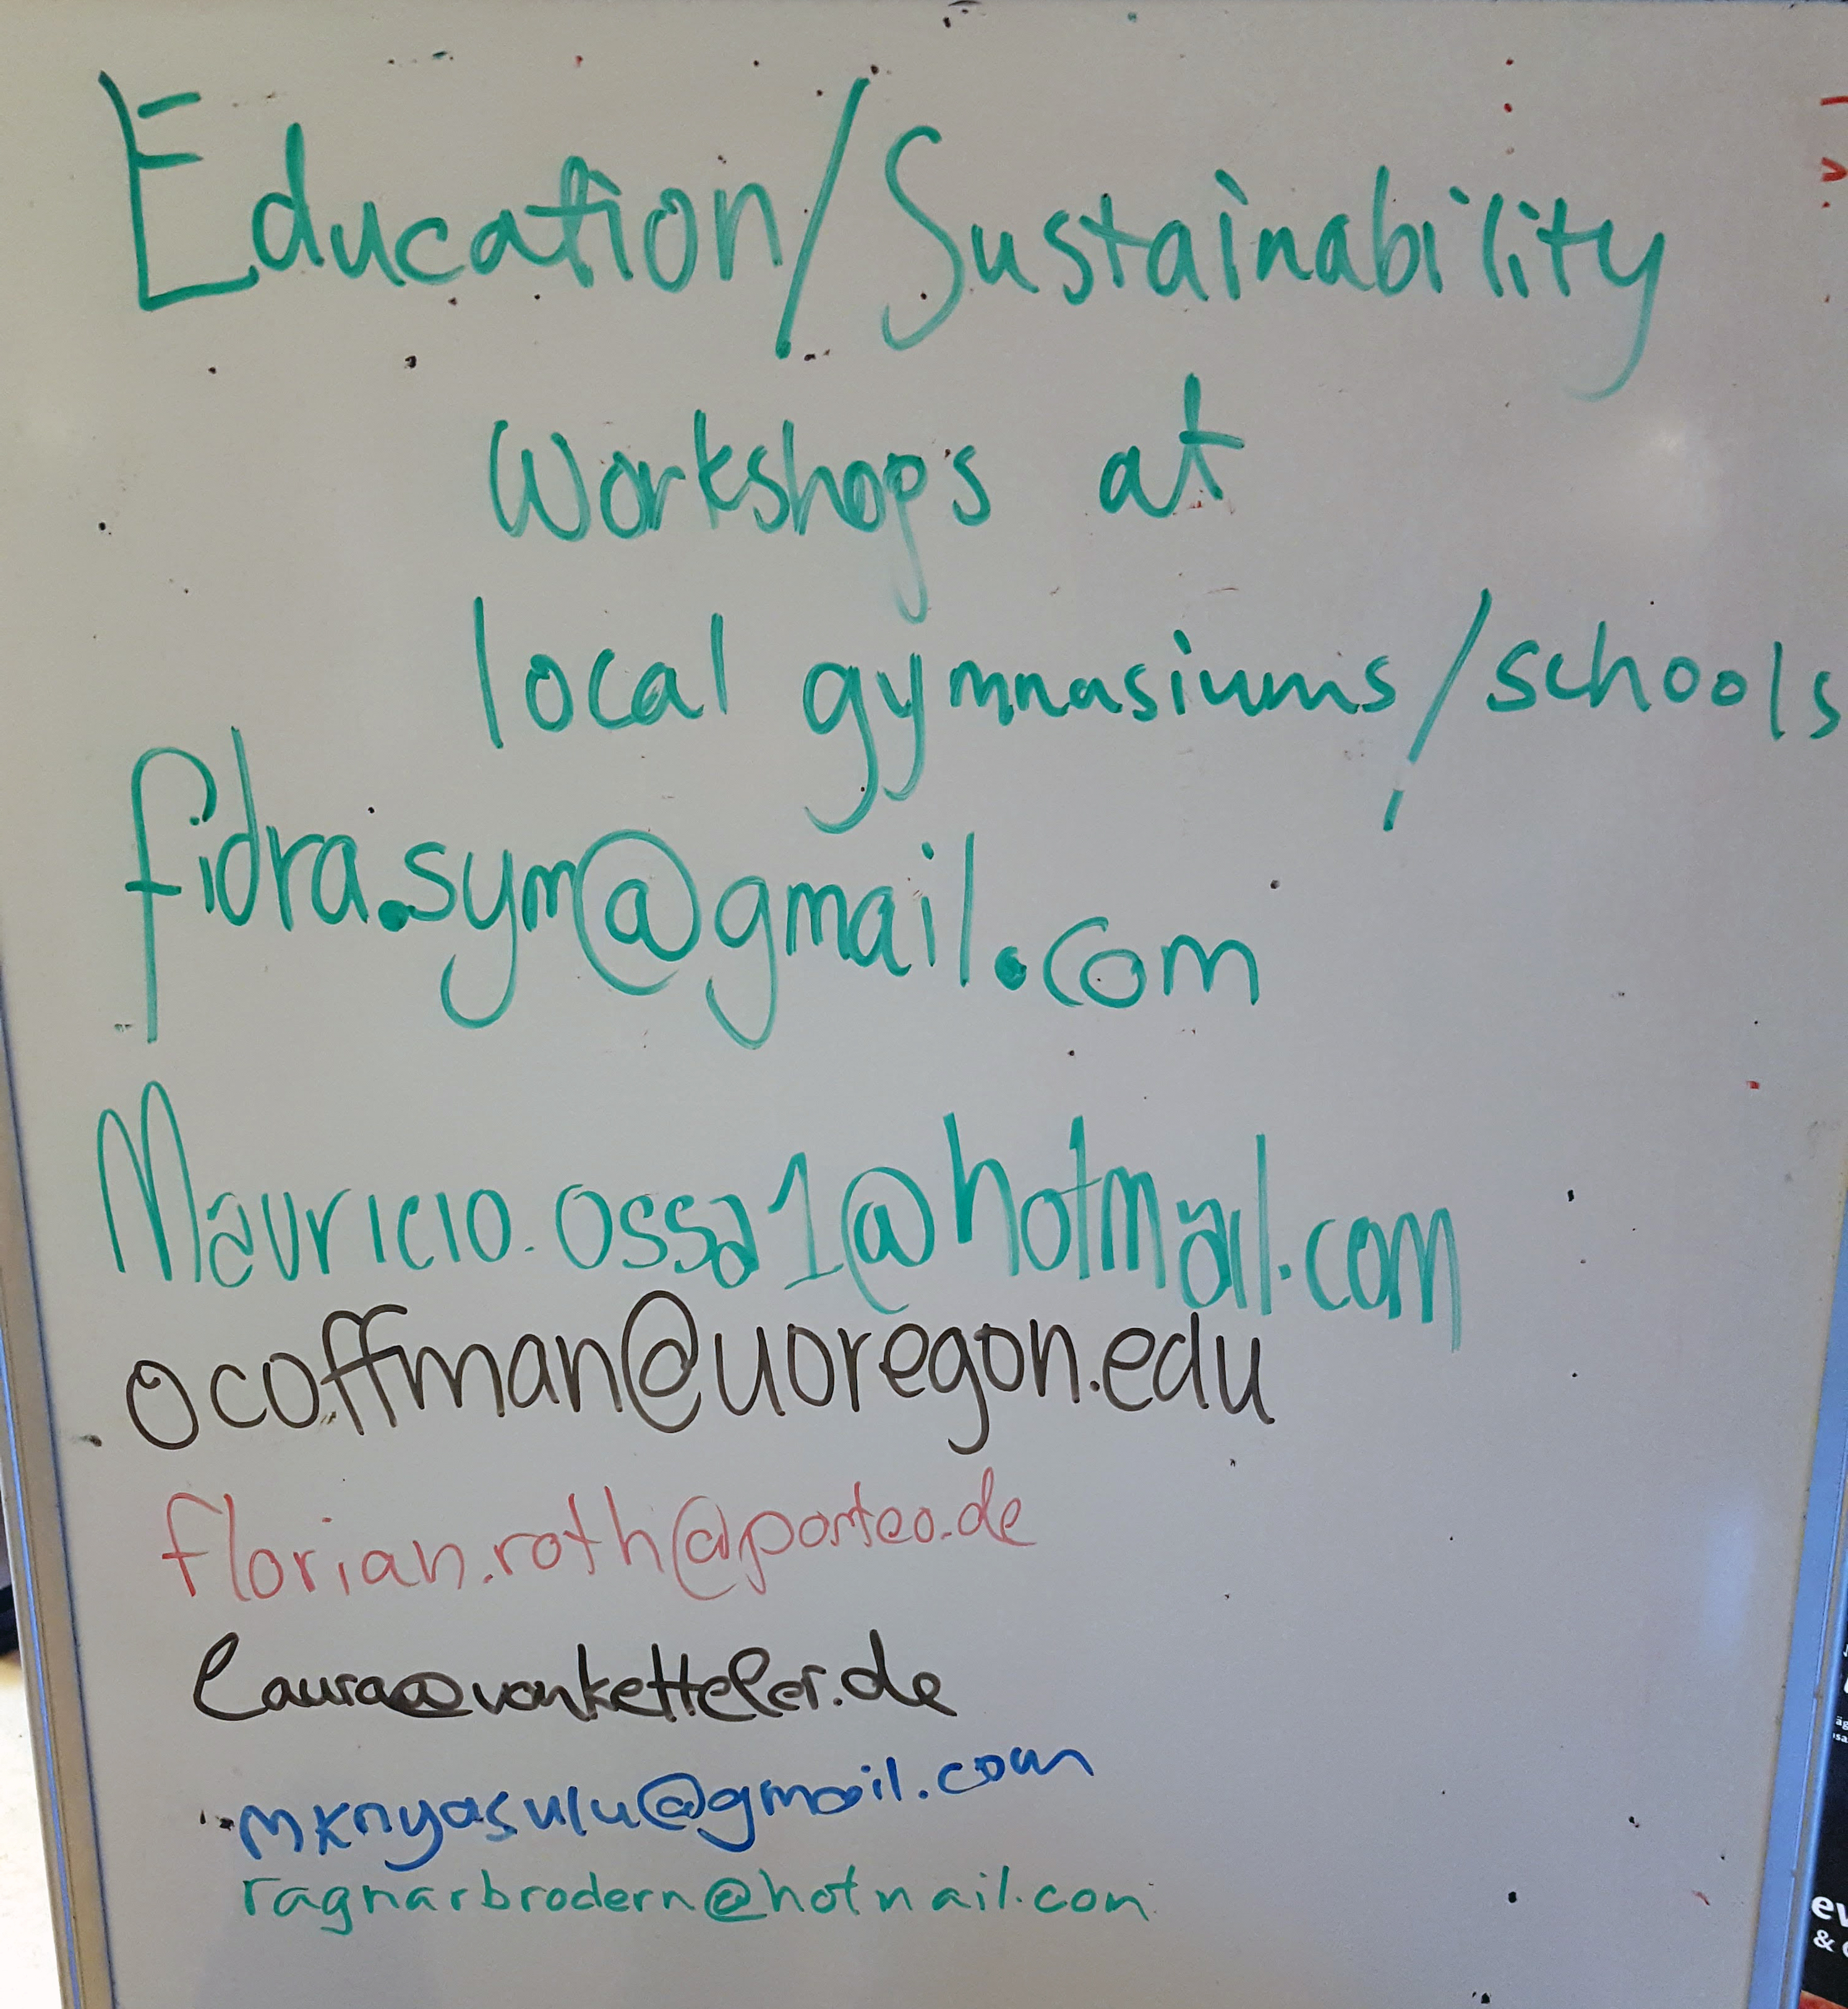 Education/Sustainability
Workshops at
local gymnasiums/schools
fidra.sym@gmail.com
Mauricio.ossa1@hotmail.com
ocoffman@uoregon.edu
florian.roth@posteo.de
laura@vonketteler.de
mknyasulu@gmail.com
ragnarbrodern@hotmail.com
ev
&